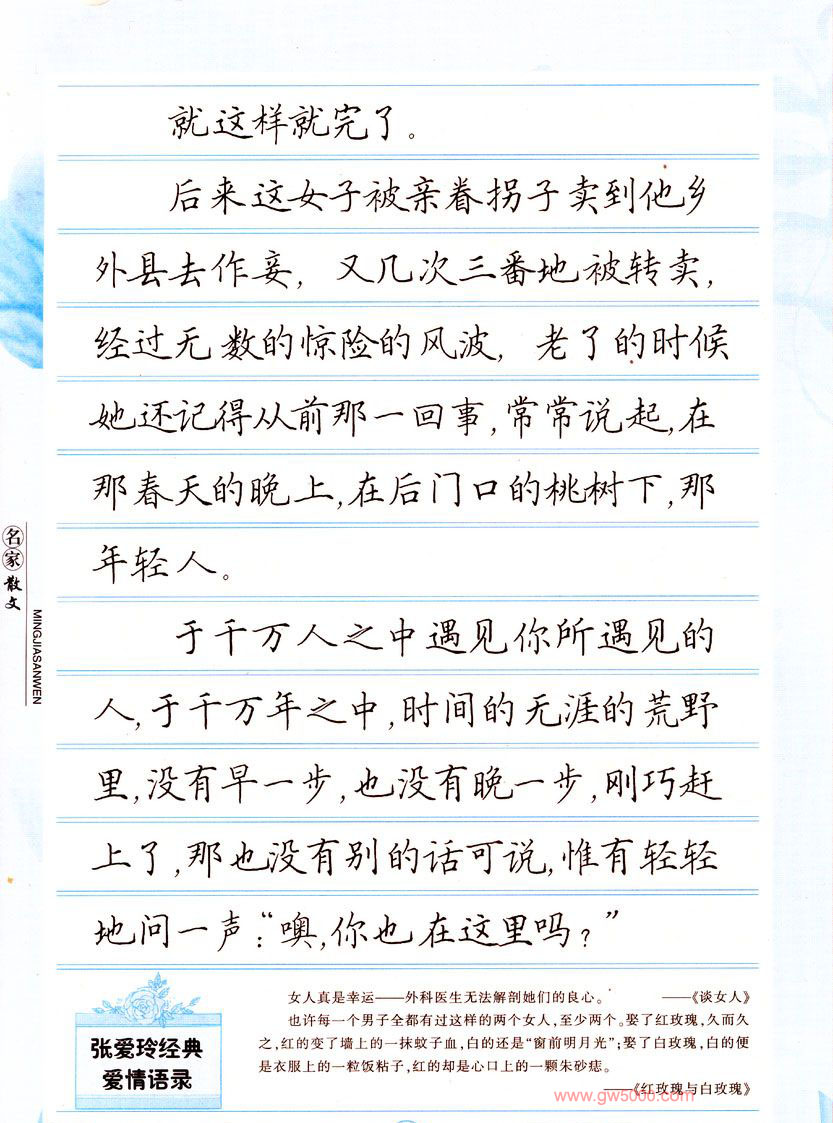 就这样就完了。
后来这女子被亲眷拐子卖到他乡
外县去作妾，又几次三番地被转卖，
经过无数的惊险的风波，老了的时候
她还记得从前那一回事，常常说起，在
那春天的晚上，在后门口的桃树下，那
年轻人。
于千万人之中遇见你所遇见的
人，于千万年之中，时间的无涯的荒野
里，没有早一步，也没有晚一步，刚巧赶
上了，那也没有别的话可说，惟有轻轻
地问一声：“噢，你也在这里吗？”
名家散文
MINGJIASANWEN
张爱玲经典
爱情语录
女人真是幸运——外科医生无法解剖她们的良心。 ——《谈女人》
也许每一个男子全都有过这样的两个女人，至少两个。娶了红玫瑰，久而久
之，红的变了墙上的一抹蚊子血，白的还是“窗前明月光”；娶了白玫瑰，白的便
是衣服上的一粒饭粘子，红的却是心口上的一颗朱砂痣。
——《红玫瑰与白玫瑰》
www.gw5000.com